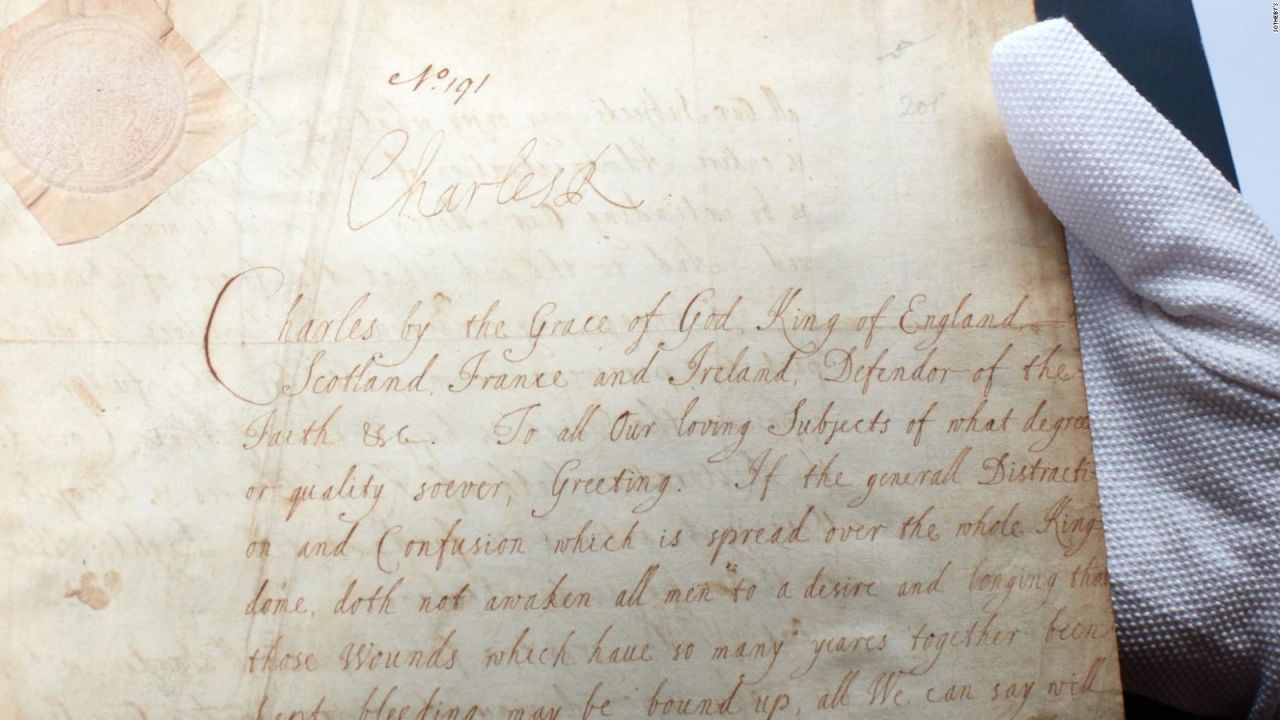 SOTHEBY'S
No. 191
201
Charles R
Charles by the Grace of God, King of England,
Scotland, France and Ireland, Defendor of the
Faith &c. To all Our loving Subjects of what degree
or quality soever, Greeting. If the generall Distracti-
on and Confusion which is spread over the whole King-
dome, doth not awaken all men to a desire and longing that
those Wounds which have so many yeares together been
kept bleeding may be bound up, all We can say will